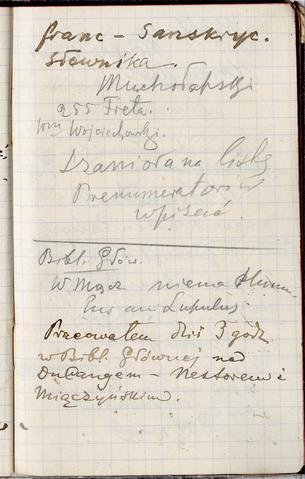 franc – Sanskryc.
słownika.
Muchołapski
255 Freta.
Wojciechowski.
na listę
Prenumeratorów
wpisać.
Bibl. Głów.
W Mgaz niema
Lupulus
Pracowałem dziś 3 godz
w Bibl. Głównej nad
DuCangem – Nestorem i
Miączyńskim.